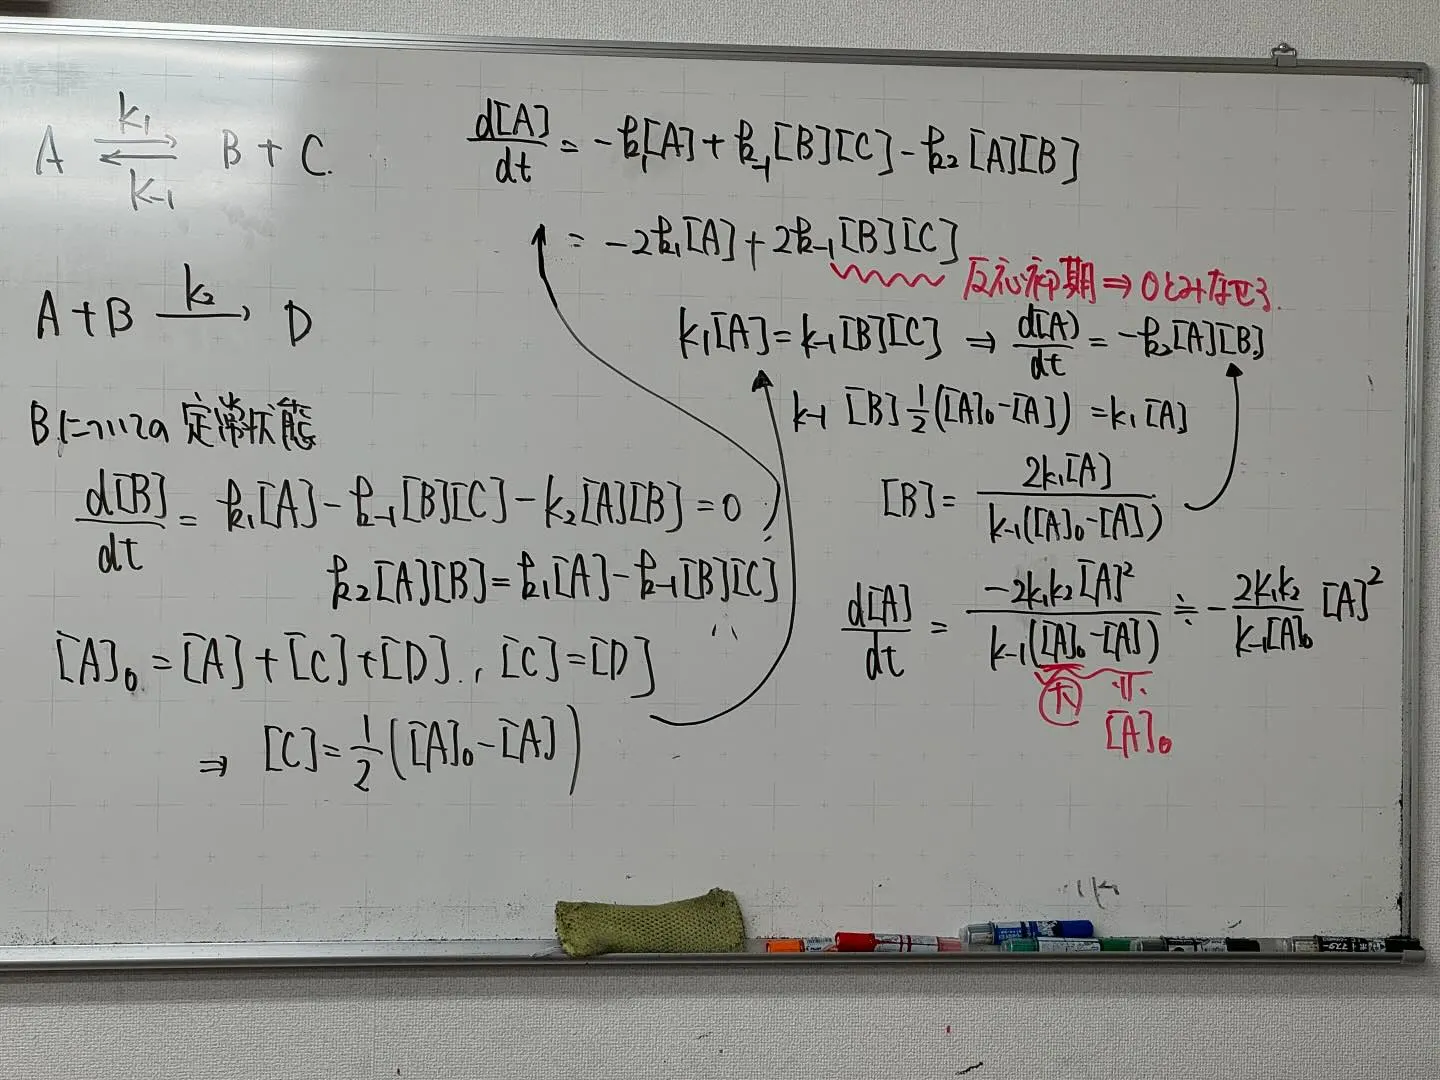 A ⇌ B + C.
k₁
k-₁
A + B → D
k₂
Bについての定常状態
d[B]/dt = k₁[A] - k-₁[B][C] - k₂[A][B] = 0
k₂[A][B] = k₁[A] - k-₁[B][C]
[A]₀ = [A] + [C] + [D], [C] = [D]
⇒ [C] = 1/2([A]₀ - [A])
d[A]/dt = -k₁[A] + k-₁[B][C] - k₂[A][B]
= -2k₁[A] + 2k-₁[B][C]
反応初期 ⇒ 0とみなせる.
k₁[A] = k-₁[B][C] ⇒ d[A]/dt = -k₂[A][B]
k-₁[B]1/2([A]₀ - [A]) = k₁[A]
[B] = 2k₁[A]/k-₁([A]₀ - [A])
d[A]/dt = -2k₁k₂[A]²/k-₁([A]₀ - [A]) ≒ -2k₁k₂/k-₁[A]₀ [A]²
大
[A]₀